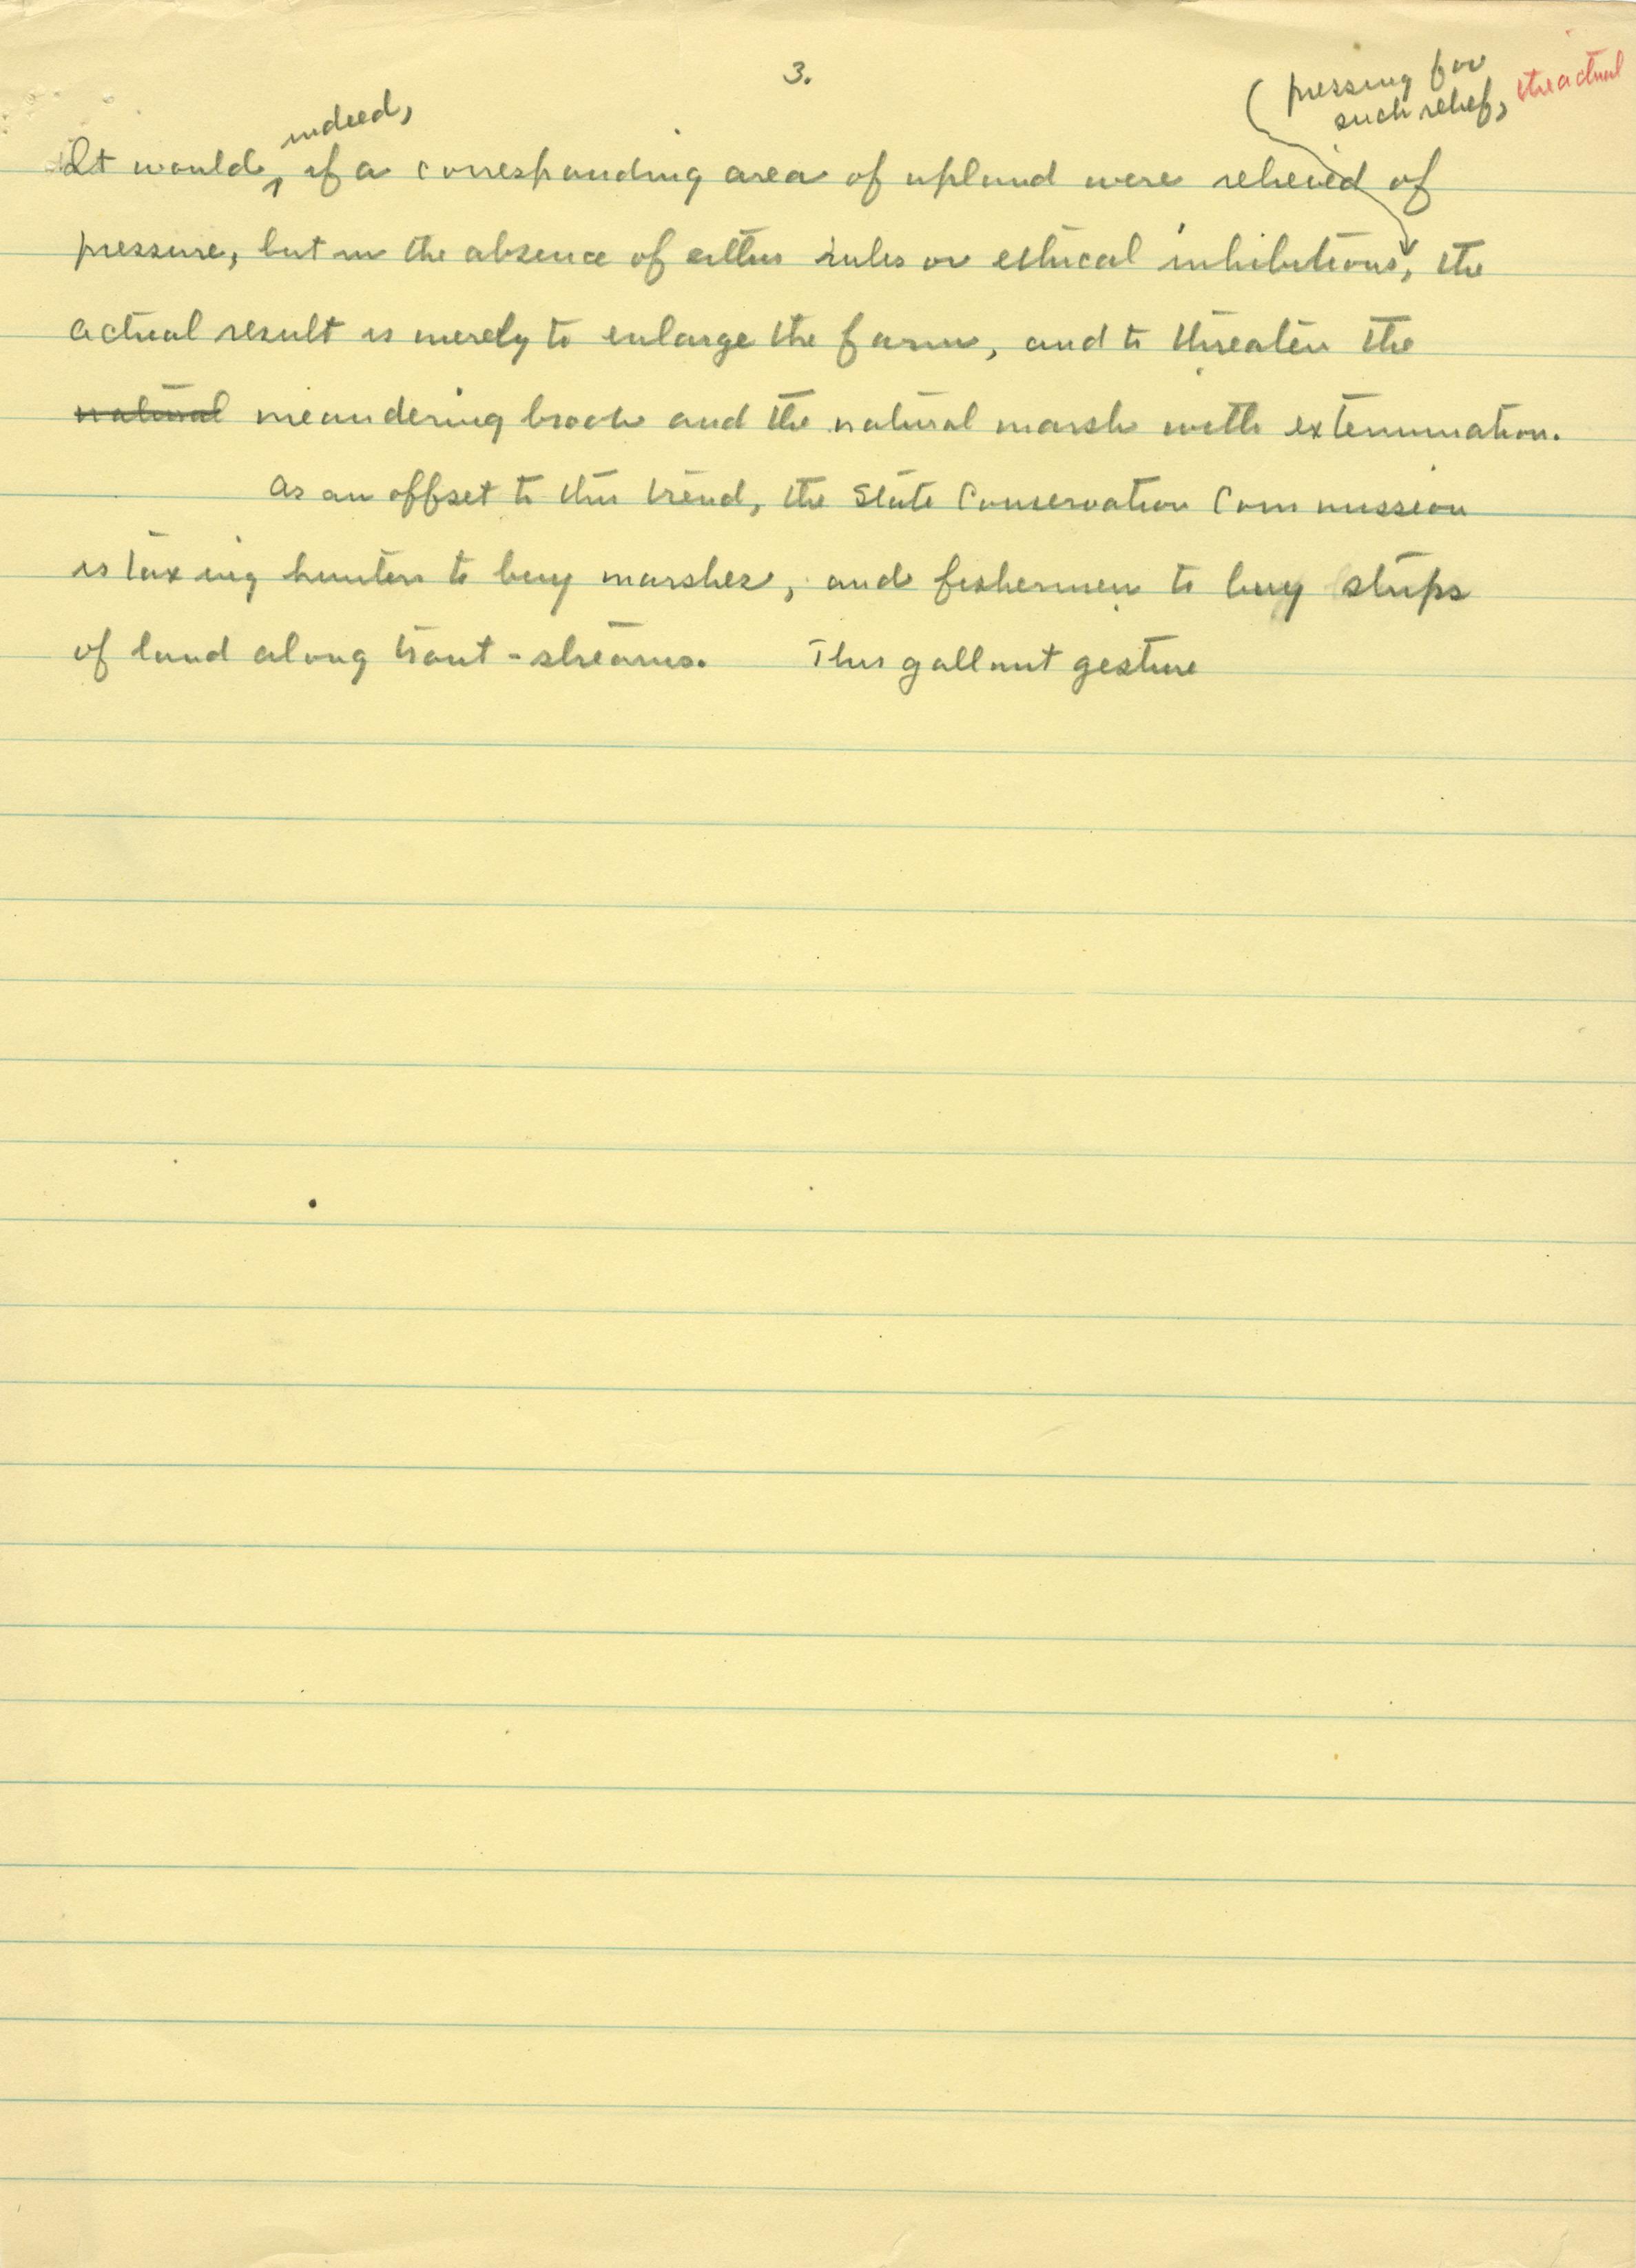 3.
(pressing for
such relief, the actual
indeed,
It would, if a corresponding area of upland were relieved of
pressure, but in the absence of either rules or ethical inhibitions, the
actual result is merely to enlarge the farm, and to threaten the
natural meandering brook and the natural marsh with extermination.
As an offset to this trend, the State Conservation Commission
is taxing hunters to buy marshes, and fishermen to buy strips
of land along trout-streams. This gallant gesture